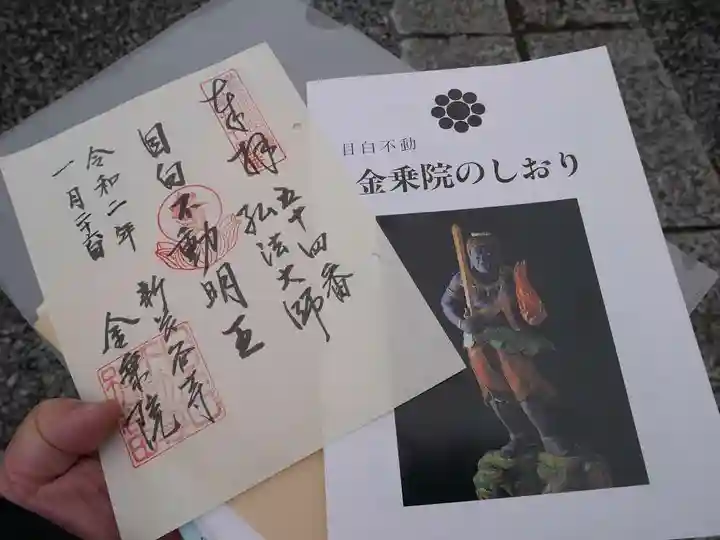 奉拝
五十四番
弘法大師
目白不動明王
新長谷寺
金乗院
令和二年
一月二十六日
目白不動
金乗院のしおり